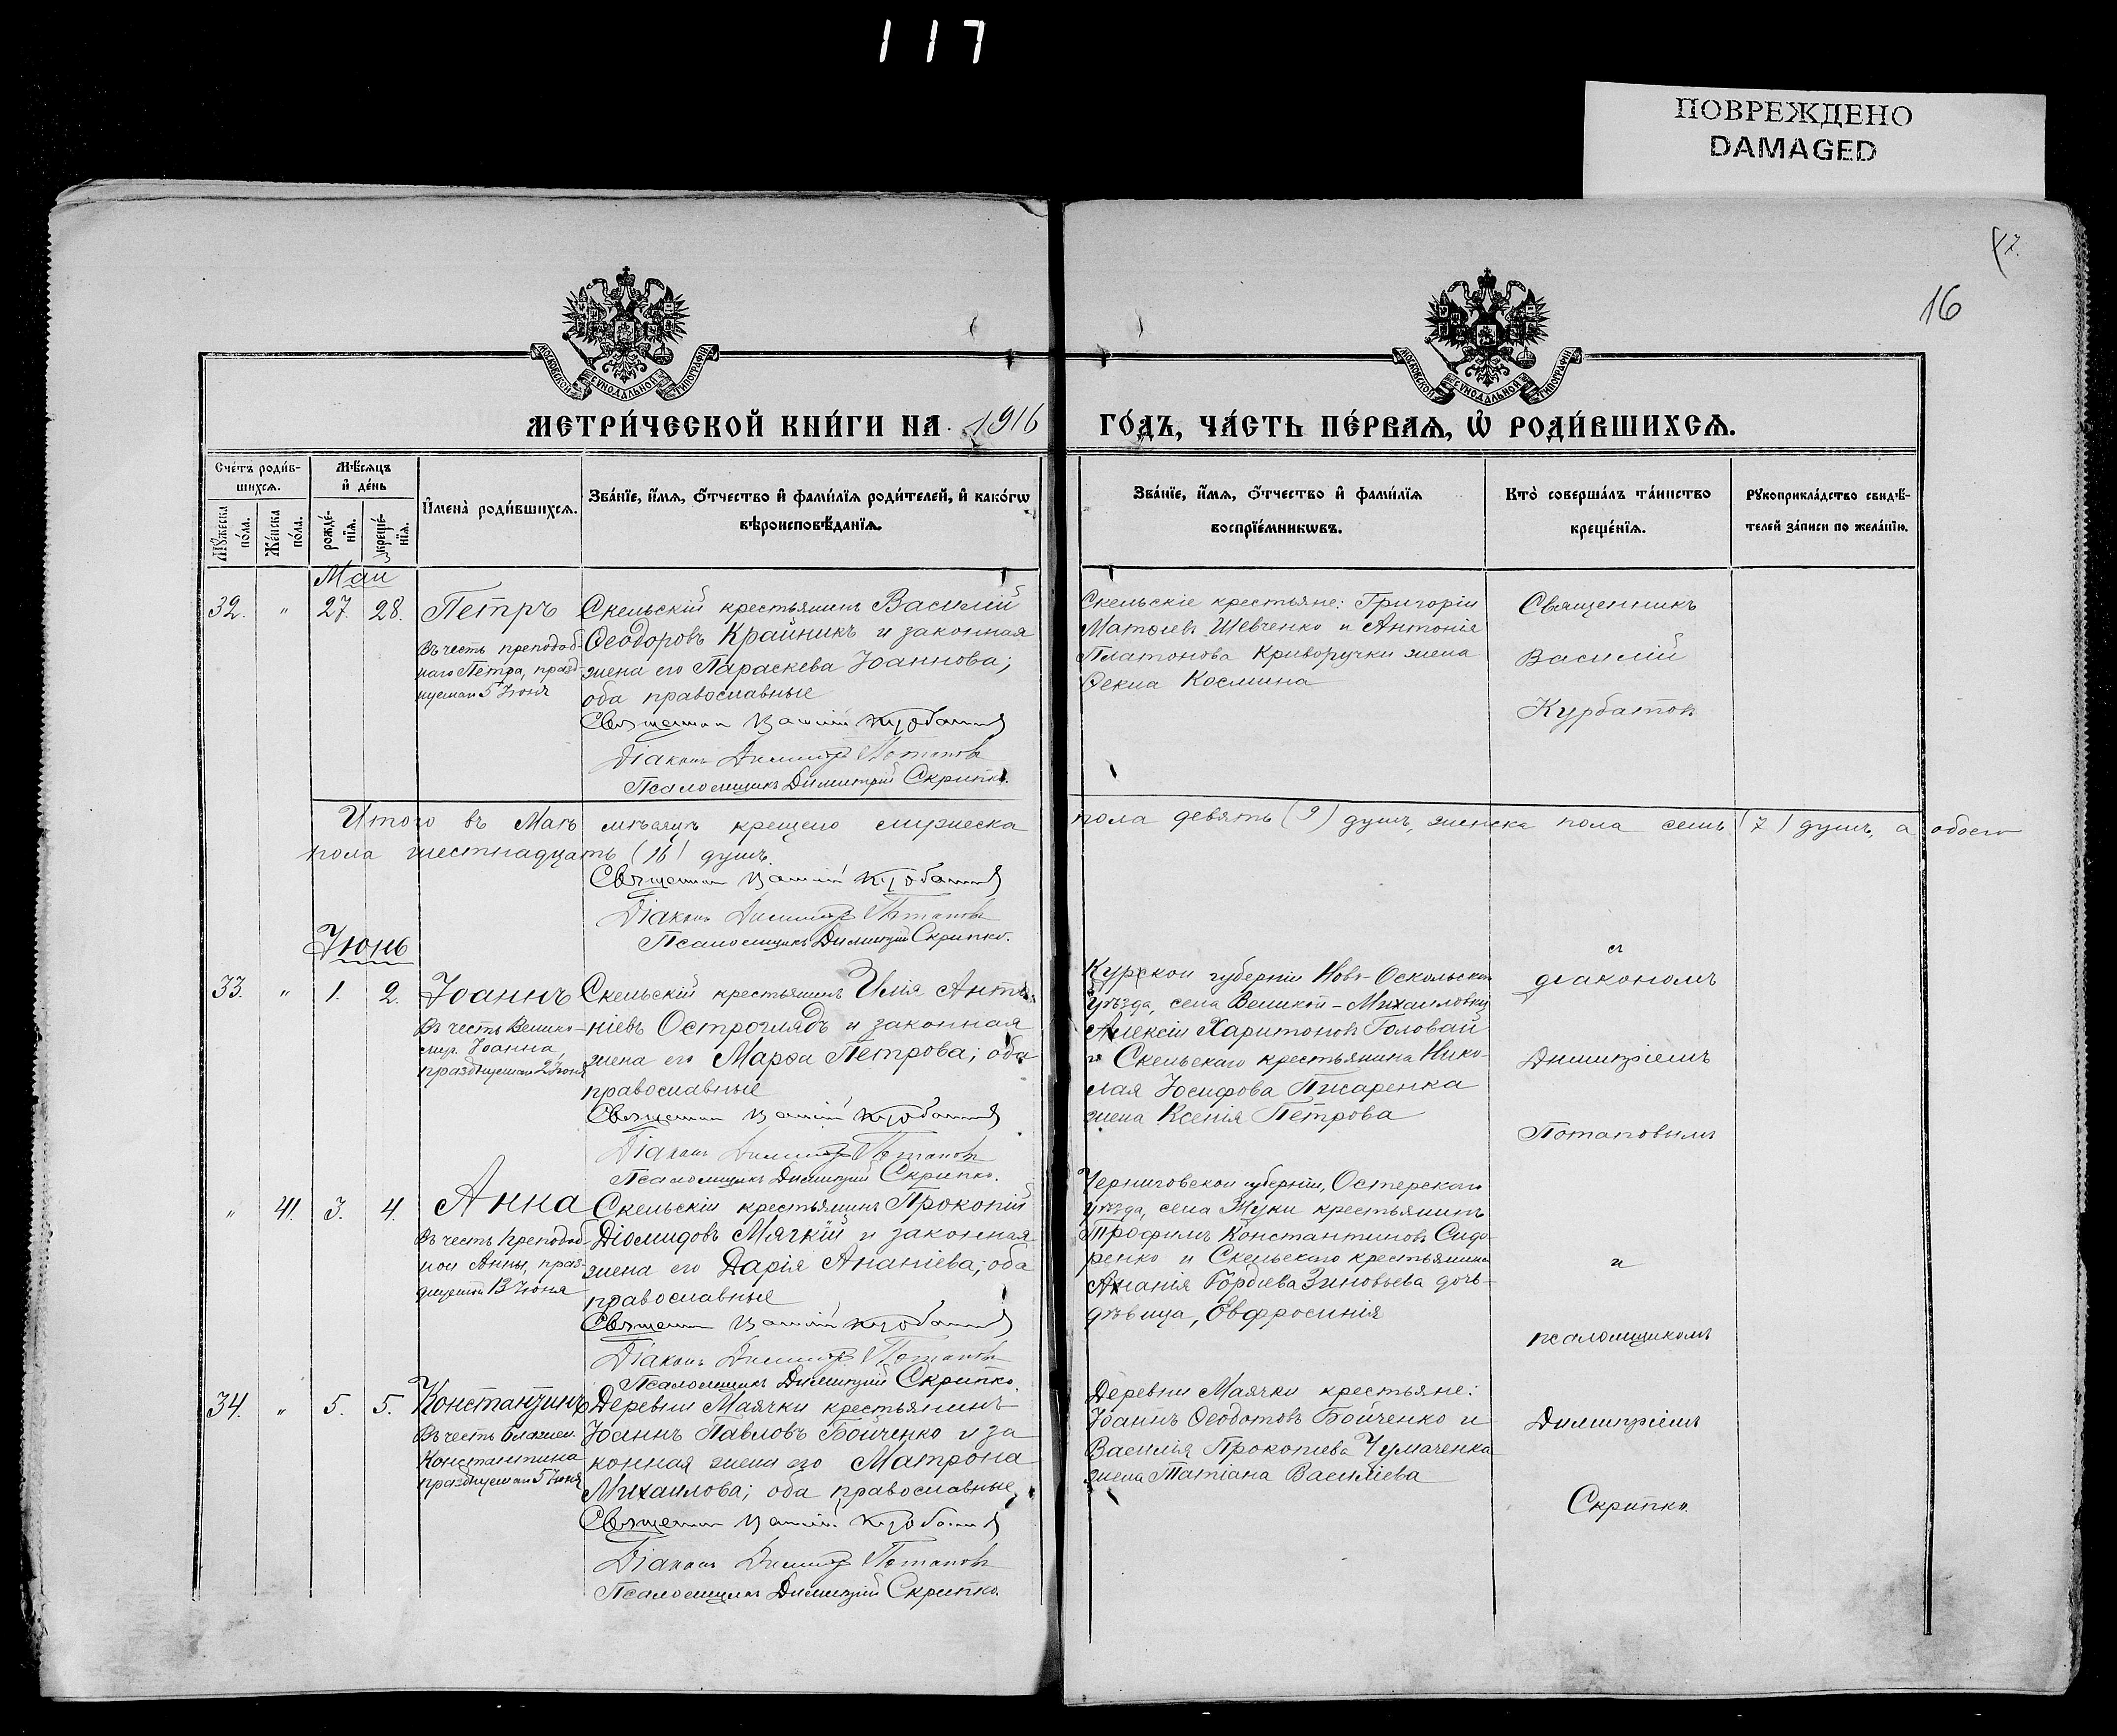 117
ПОВРЕЖДЕНО
DAMAGED
17.
16
МОСКОВСКОЙ СѴНОДАЛЬНОЙ ТИПОГРАФІИ
МОСКОВСКОЙ СѴНОДАЛЬНОЙ ТИПОГРАФІИ
МЕТРИ́ЧЕСКОЙ КНИ́ГИ НА 1916 ГО́ДЪ, ЧА́СТЬ ПЕ́РВАѦ, Ѡ҆ РОДИ́ВШИХСѦ.
Сче́тъ роди́в-
шихсѧ.
Мѣ́сѧцъ
и҆ де́нь
Мꙋ́жеска
по́ла.
Же́нска
по́ла.
рожде́-
нїѧ.
креще́-
нїѧ.
И҆мена̀ роди́вшихсѧ.
Зва́нїе, и҆́мѧ, ѻ҆́тчество и҆ фами́лїѧ роди́телей, и҆ како́гѡ
вѣроисповѣ́данїѧ.
Зва́нїе, и҆́мѧ, ѻ҆́тчество и҆ фами́лїѧ
воспрїе́мникѡвъ.
Кто̀ соверша́лъ та́инство
креще́нїѧ.
Рꙋкоприкла́дство свидѣ́-
телей за́писи по жела́нїю.
Май
32. " 27. 28. Петръ
Въ честь преподоб-
наго Петра, празд-
нуемаго 5 Іюня
Скельскій крестьянинъ Василій
Ѳеодоровъ Крайникъ и законная
жена его Параскева Іоаннова;
оба православные
Священникъ Василій Курбатовъ
Діаконъ Димитрій Потаповъ
Псаломщикъ Димитрій Скрипко.
Скельскіе крестьяне: Григорій
Матѳіевъ Шевченко и Антонія
Платонова Криворучки жена
Ѳекла Космина
Священникъ
Василій
Курбатовъ
Итого въ Маѣ мѣсяцѣ крещено мужеска пола девять (9) душъ, женска пола семь (7) душъ, а обоего
пола шестнадцать (16) душъ.
Священникъ Василій Курбатовъ
Діаконъ Димитрій Потаповъ
Псаломщикъ Димитрій Скрипко.
Іюнь
33. " 1. 2. Іоаннъ
Въ честь Велико-
муч. Іоанна,
празднуемаго 2 Іюня
Скельскій крестьянинъ Илія Анто-
ніевъ Остроглядъ и законная
жена его Марѳа Петрова; оба
православные
Священникъ Василій Курбатовъ
Діаконъ Димитрій Потаповъ
Псаломщикъ Димитрій Скрипко.
Курской губерніи Ново-Оскольскаго
уѣзда, села Великой-Михайловки
Алексій Харитоновъ Головай
и Скельскаго крестьянина Нико-
лая Іосифова Писаренка
жена Ксенія Петрова
съ
діакономъ
Димитріемъ
Потаповымъ
" 41. 3. 4. Анна
Въ честь преподоб-
ной Анны, праз-
днуемой 13 Іюня
Скельскій крестьянинъ Прокопій
Діомидовъ Мягкій и законная
жена его Дарія Ананіева; оба
православные
Священникъ Василій Курбатовъ
Діаконъ Димитрій Потаповъ
Псаломщикъ Димитрій Скрипко.
Черниговской губерніи, Остерскаго
уѣзда, села Жуки крестьянинъ
Трофимъ Константиновъ Сидо-
ренко и Скельскаго крестьянина
Ананія Гордіева Зиновьева дочь
дѣвица, Евфросинія
и
псаломщикомъ
34. " 5. 5. Константинъ
Въ честь блажен.
Константина
празднуемаго 5 Іюня
Деревни Маячки крестьянинъ
Іоаннъ Павловъ Бойченко и за
конная жена его Матрона
Михаилова; оба православные,
Священникъ Василій Курбатовъ
Діаконъ Димитрій Потаповъ
Псаломщикъ Димитрій Скрипко.
Деревни Маячки крестьяне:
Іоаннъ Ѳеодотовъ Бойченко и
Василія Прокопіева Чумаченка
жена Татіана Василіева
Димитріемъ
Скрипко.